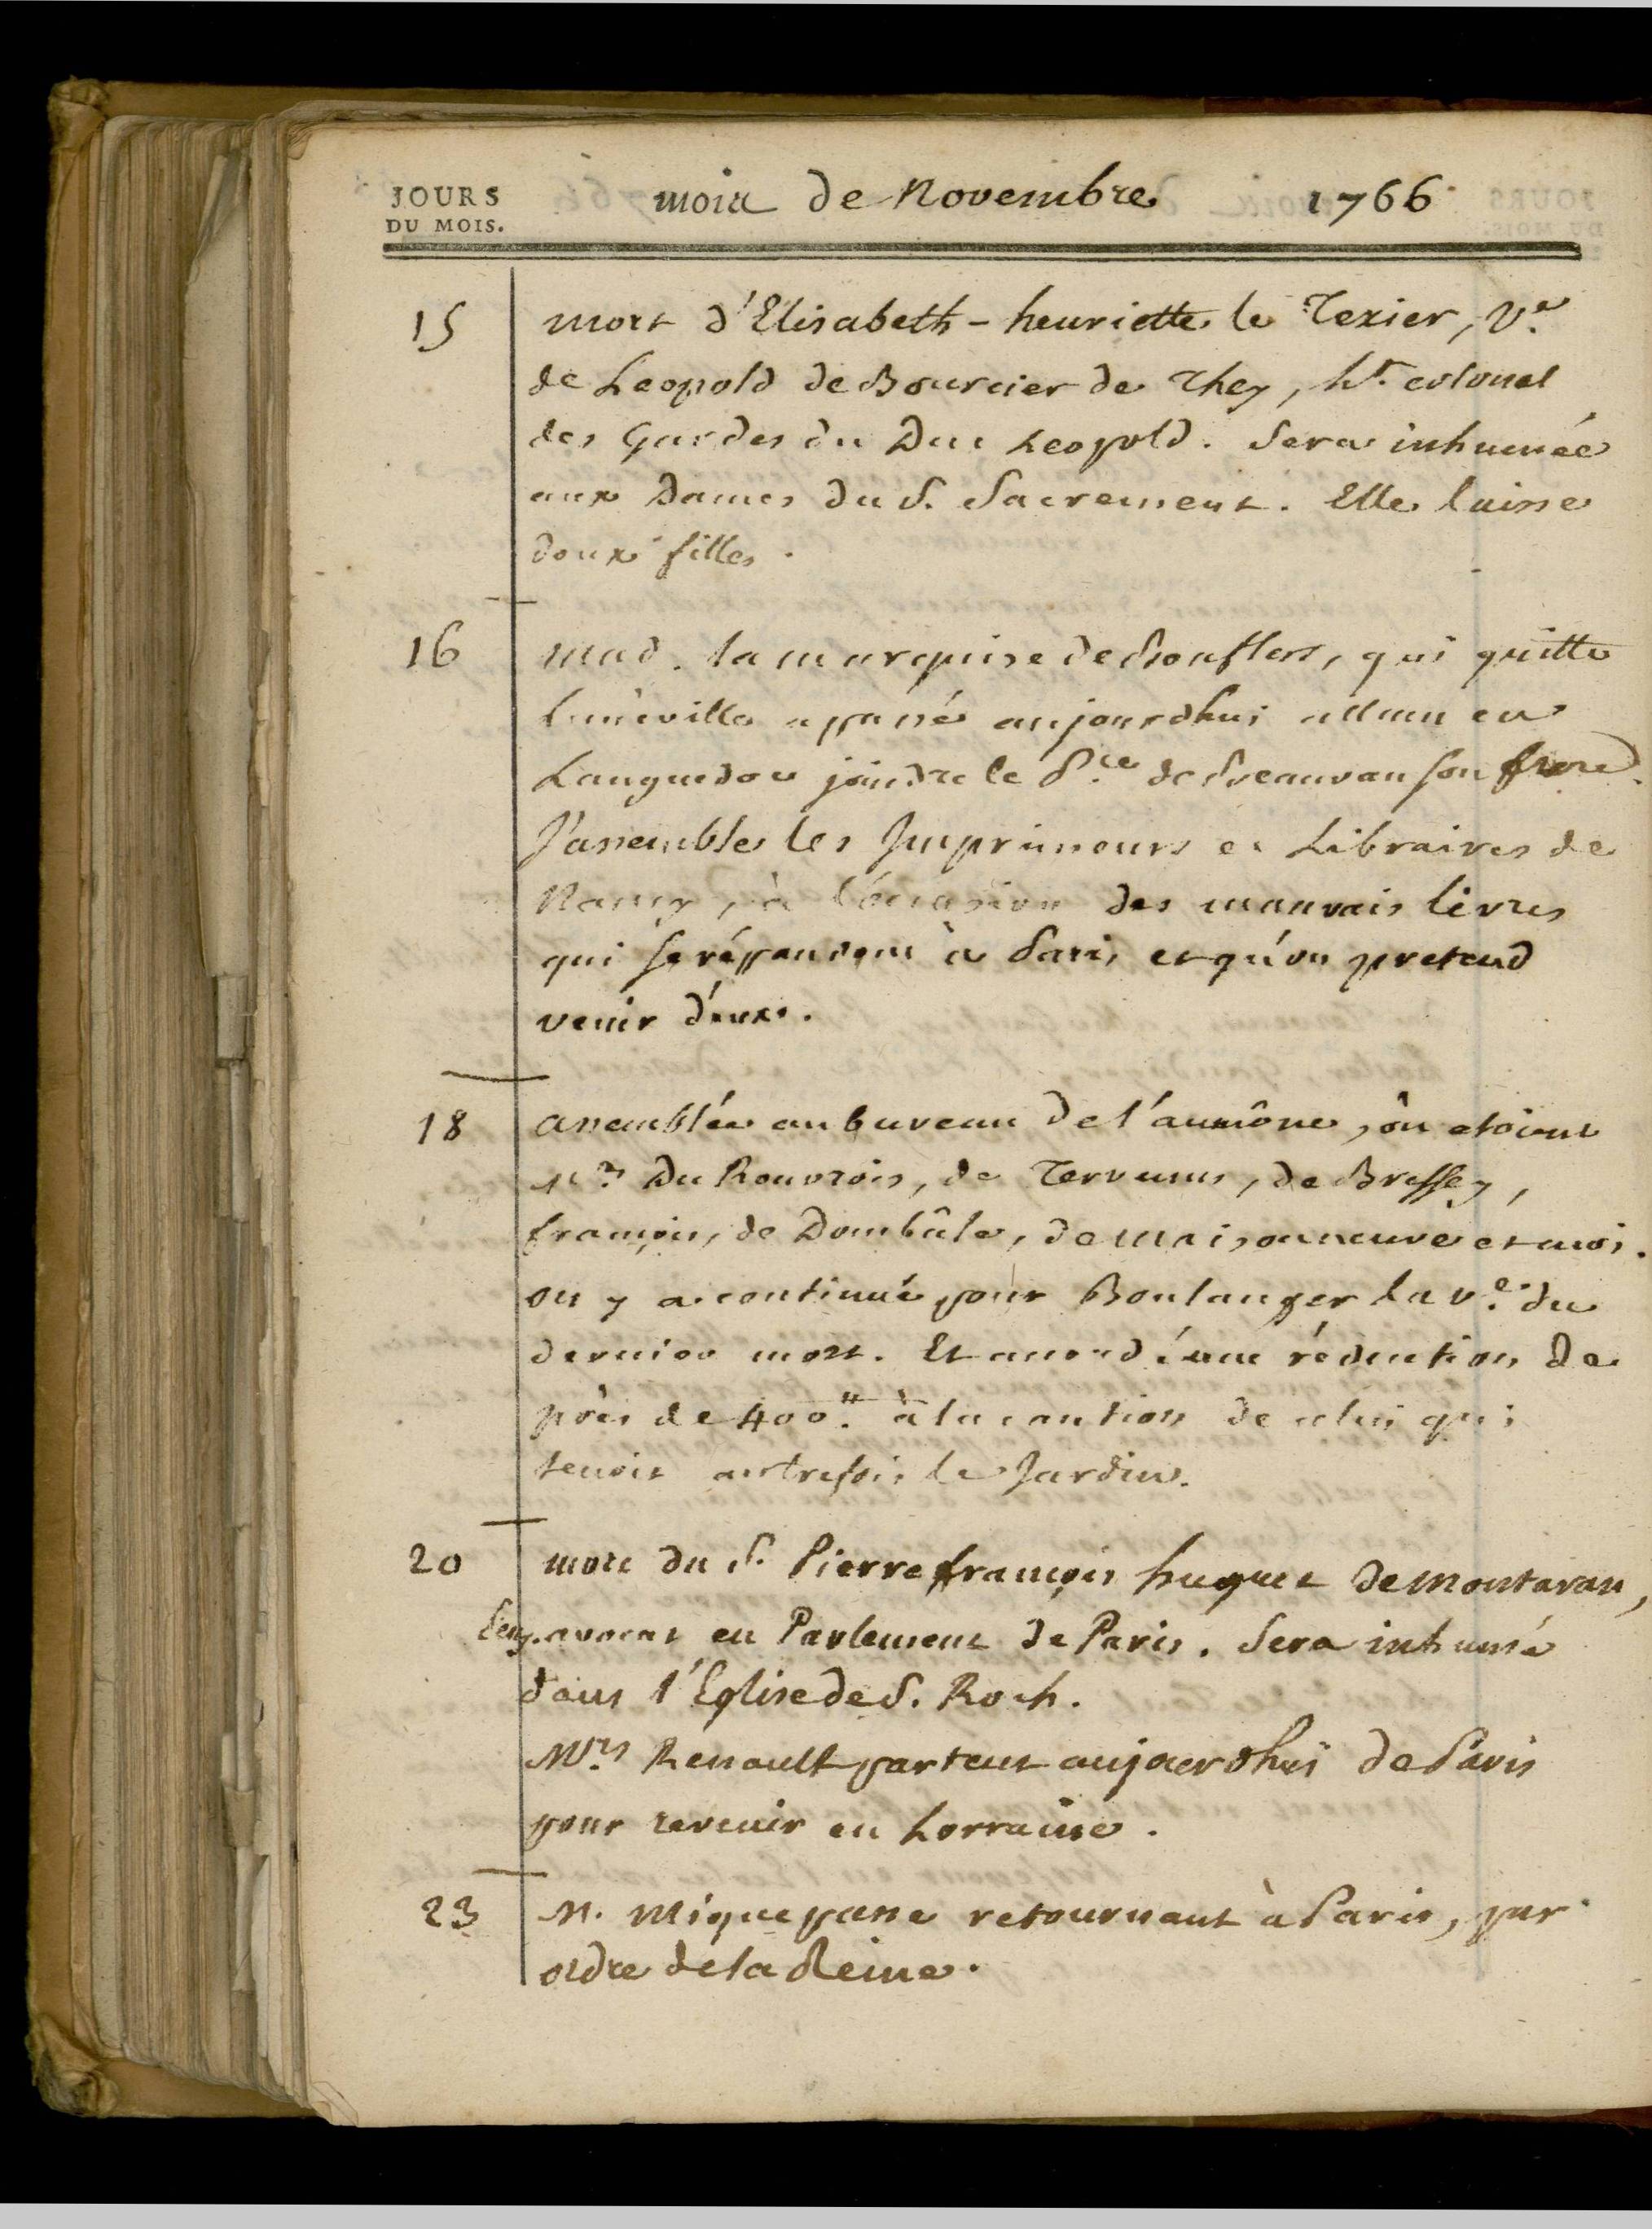 JOURS
DU MOIS.
mois de Novembre 1766
15 mort d'Elisabeth-henriette le Texier, Ve.
de Leopold de Bourcier de They, Lt. colonel
des Gardes du Duc Leopold. Sera inhumée
aux Dames du S. Sacrement. Elle laisse
deux filles.
16 mad. la marquise de Boufflers, qui quitte
Lunéville a passé aujourdhui allant en
Languedoc joindre le Pce. de Beauvau son frere.
J'assemble les Imprimeurs et Libraires de
Nancy, à l'occasion des mauvais livres
qui se répandent à Paris et qu'on pretend
venir d'eux.
18 assemblée au bureau de l'aumône, où etoient
Mrs. Du Rouvrois, de Tervenus, de Bressey,
françois, de Dombâle, de Maisonneuve et moi.
on y a continué pour Boulanger la ve. du
dernier mort. Et accordé une réduction de
près de 400.tt à la caution de celui qui
tenoit autrefois le Jardin.
20 mort du S. Pierre françois huguet de Montaran,
Ecuy. avocat en Parlement de Paris. Sera inhumé
dans l'Eglise de S. Roch.
Mrs. Renault partent aujourdhui de Paris
pour revenir en Lorraine.
23 M. Mique passe retournant à Paris, par
ordre de la Reine.